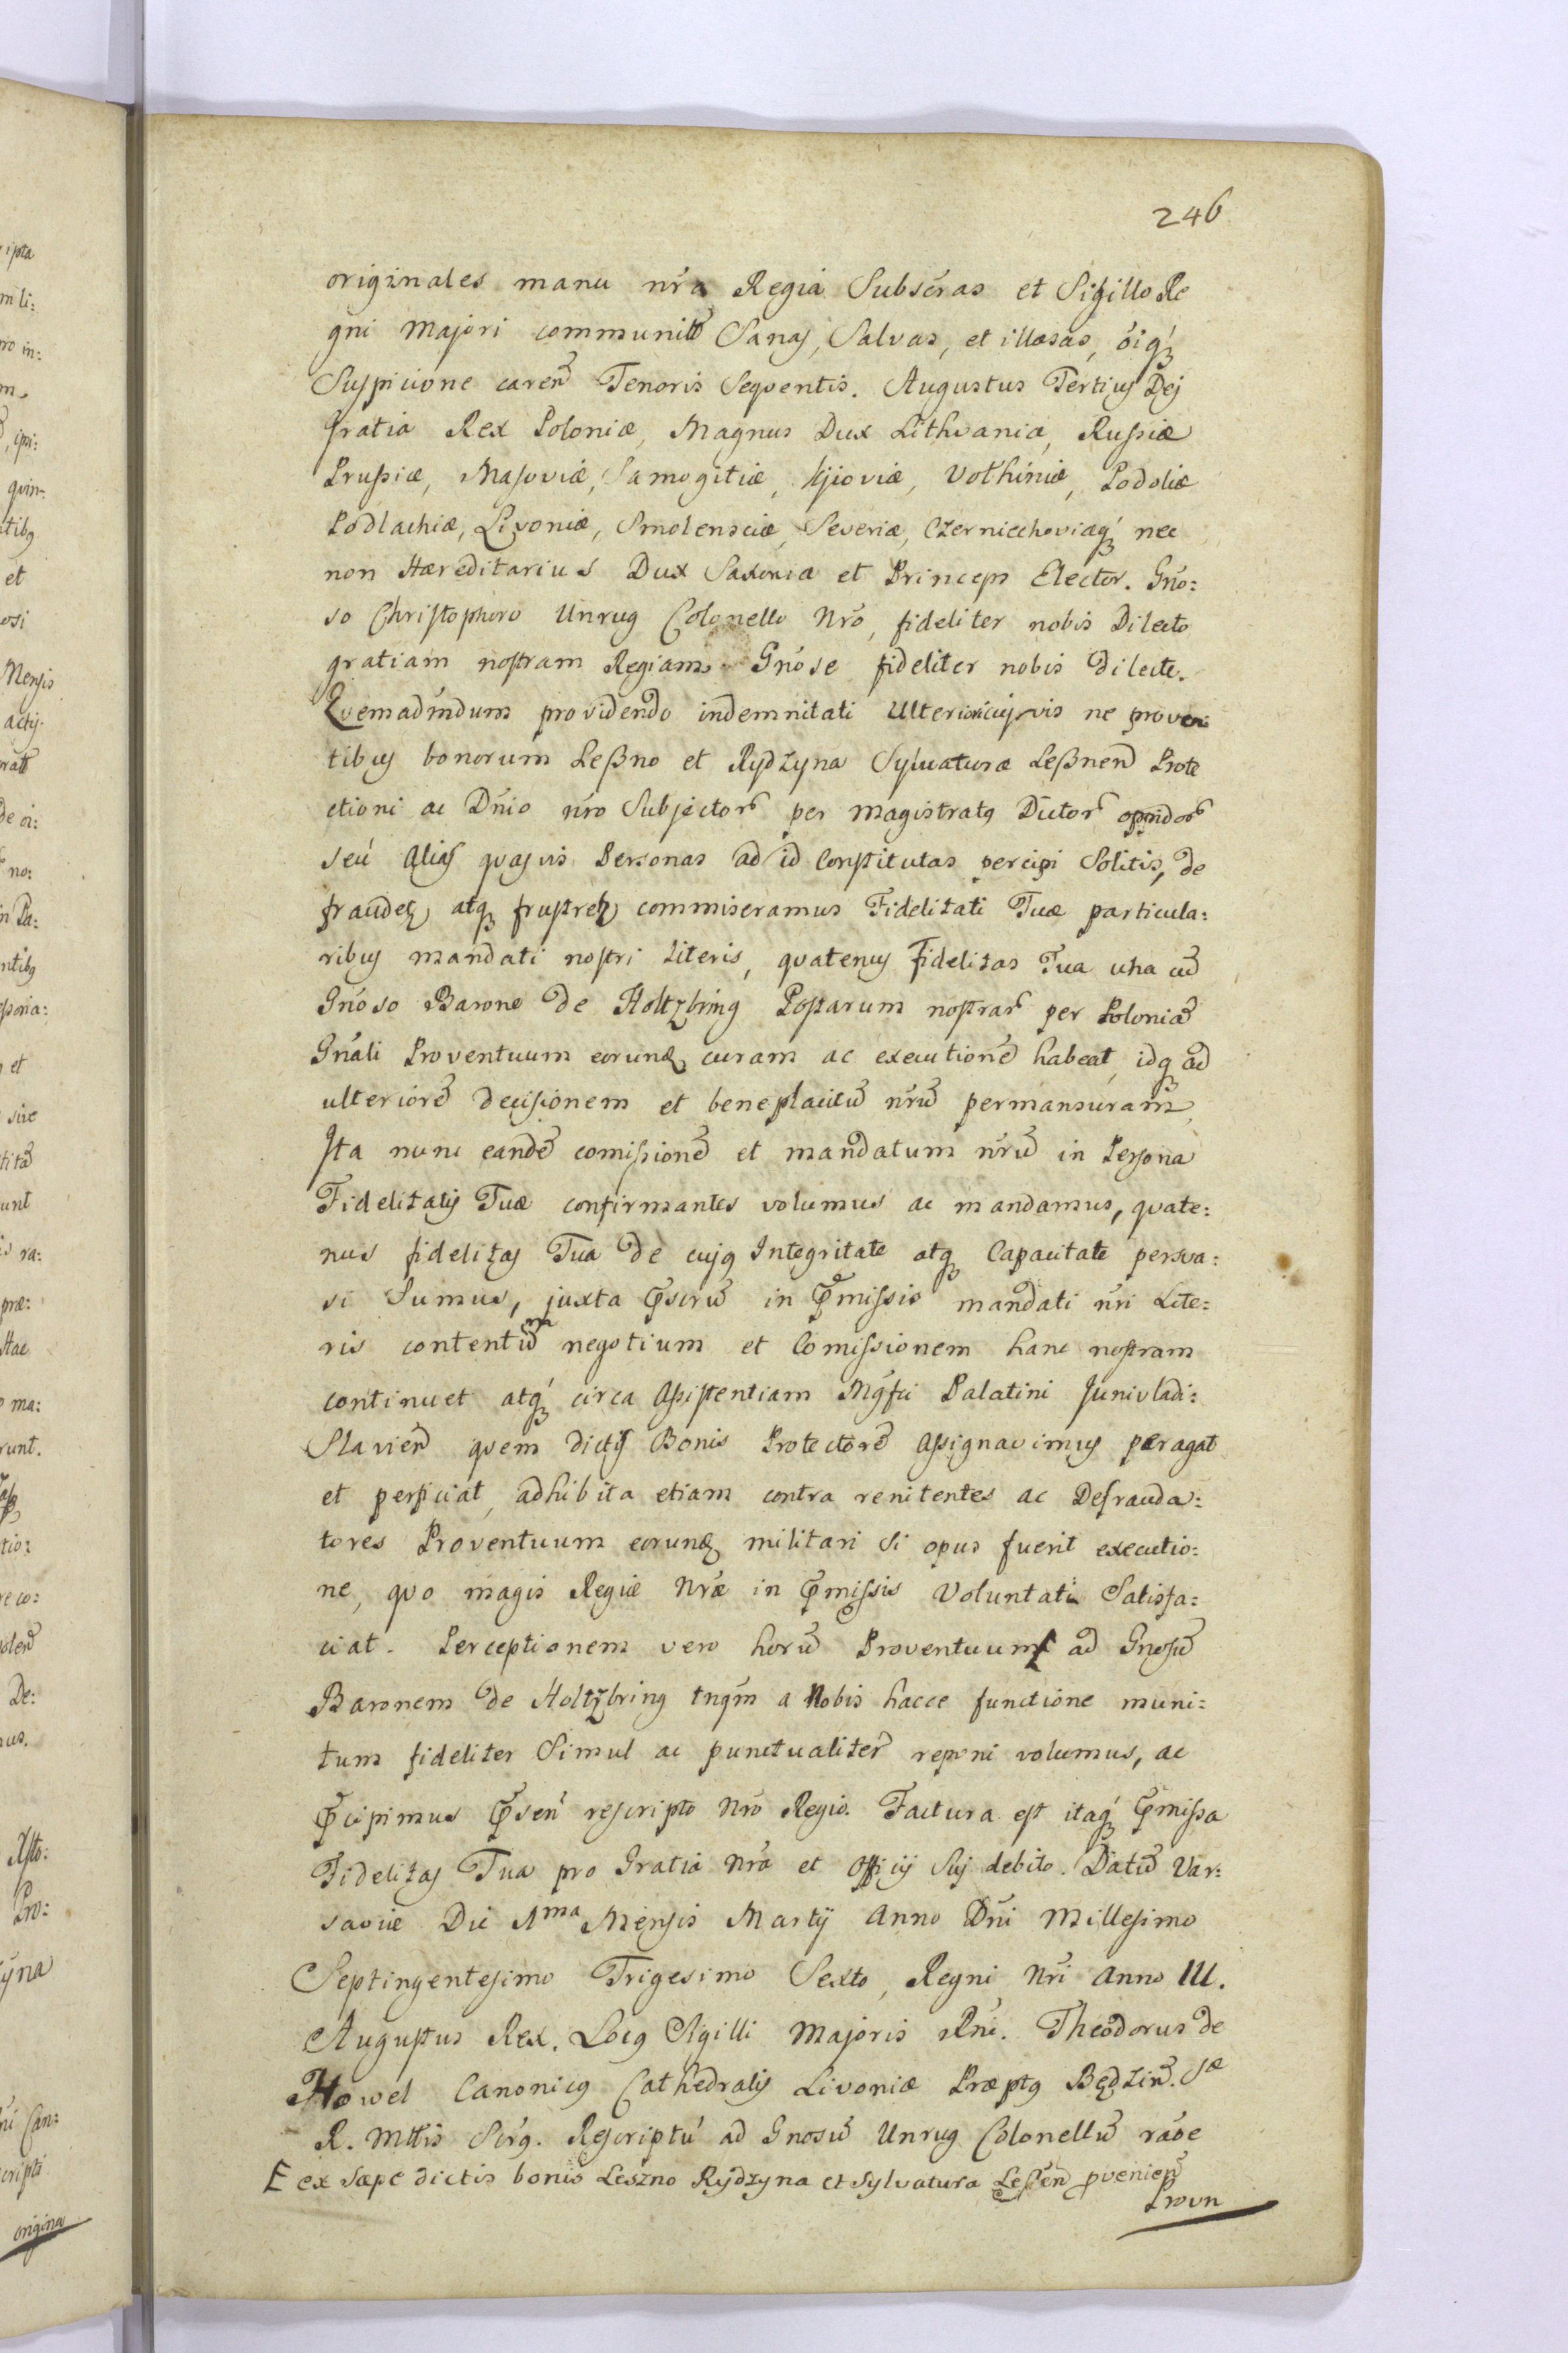 246
originales manu nrã Regia Subscras et Sigillo Re
gni Majori communitt Sanas, Salvas, et illæsas, oiq́
Suspicione careñ Tenoris Seqventis. Augustus Tertius Dej
Gratia Rex Poloniæ, Magnus Dux Lithvaniæ, Russiæ
Prussiæ, Masoviæ, Samogitiæ, Kijoviæ, Volhiniæ, Podoliæ
Podlachiæ, Livoniæ, Smolensciæ, Severiæ, Czerniechoviæq́ nec
non Hæreditarius Dux Saxoniæ et Princeps Elector. Gno:
so Christophoro Unrug Colonello Nro, fideliter nobis Dilecto
gratiam nostram Regiam. Gnose fideliter nobis dilecte.
Qvemadmdum providendo indemnitati Ulteriori cujusvis ne proven
tibus bonorum Leßno et Rydzyna Sylvaturæ Leßneñ Prote
ctioni ac Dnio nro Subjector per Magistratq Dictor oppidor
seu alias qvasvis Personas ad id Constitutas percipi Solitis, de
fraudeť atq frustreť commiseramus Fidelitati Tuæ particula:
ribus mandati nostri Literis, qvatenus Fidelitas Tua una cũ
Gnoso Barone de Holtzbring Postarum nostrar per Poloniã
Gnali Proventuum eorundē curam ac executionē habeat, idq ad
ulteriorē decisionem et beneplacitũ nrũ permansuram,
Ita nunc eandē comissionē et mandatum nrũ in Persona
Fidelitatis Tuæ confirmantes volumus ac mandamus, qvate:
nus fidelitas Tua de cujq Integritate atq Capacitate persva:
si Sumus, juxta Pscrũ in Pmissis mandati nri Lite:
ris contentũ negotium et Comissionem hanc nostram
continuet atq́ circa Assistentiam Mgfci Palatini Junivladi:
slavieñ qvem dictis Bonis Protectorē assignavimus peragat
et perficiat, adhibita etiam contra renitentes ac Defrauda:
tores Proventuum eorundē militari si opus fuerit executio:
ne, qvo magis Regiæ Nræ in Pmissis Voluntati Satisfa:
ciat. Perceptionem vero horũ Proventuum E ad Gnosũ
Baronem de Holtzbring tnqm a Nobis hacce functione muni:
tum fideliter Simul ac punctualiter reponi volumus, ac
Pcipimus Pseñ rescripto Nro Regio. Factura est itaq́ Pmissa
Fidelitas Tua pro Gratia Nra et Officij Sui debito. Datũ Var:
saviæ Die 1ma Mensis Martij Anno Dni Millesimo
Septingentesimo Trigesimo Sexto, Regni Nri Anno III.
Augustus Rex. Locq Sigilli Majoris Rni. Theodorus de
Howel Canonicq Cathedralis Livoniæ Præptq Będziñ. Sæ
R. Mttis Scrq. Rescriptũ ad Gnosũ Unrug Colonellũ raõe
E ex sæpe dictis bonis Leszno Rydzyna et Sylvatura Lesseñ pvenieñ
Provn